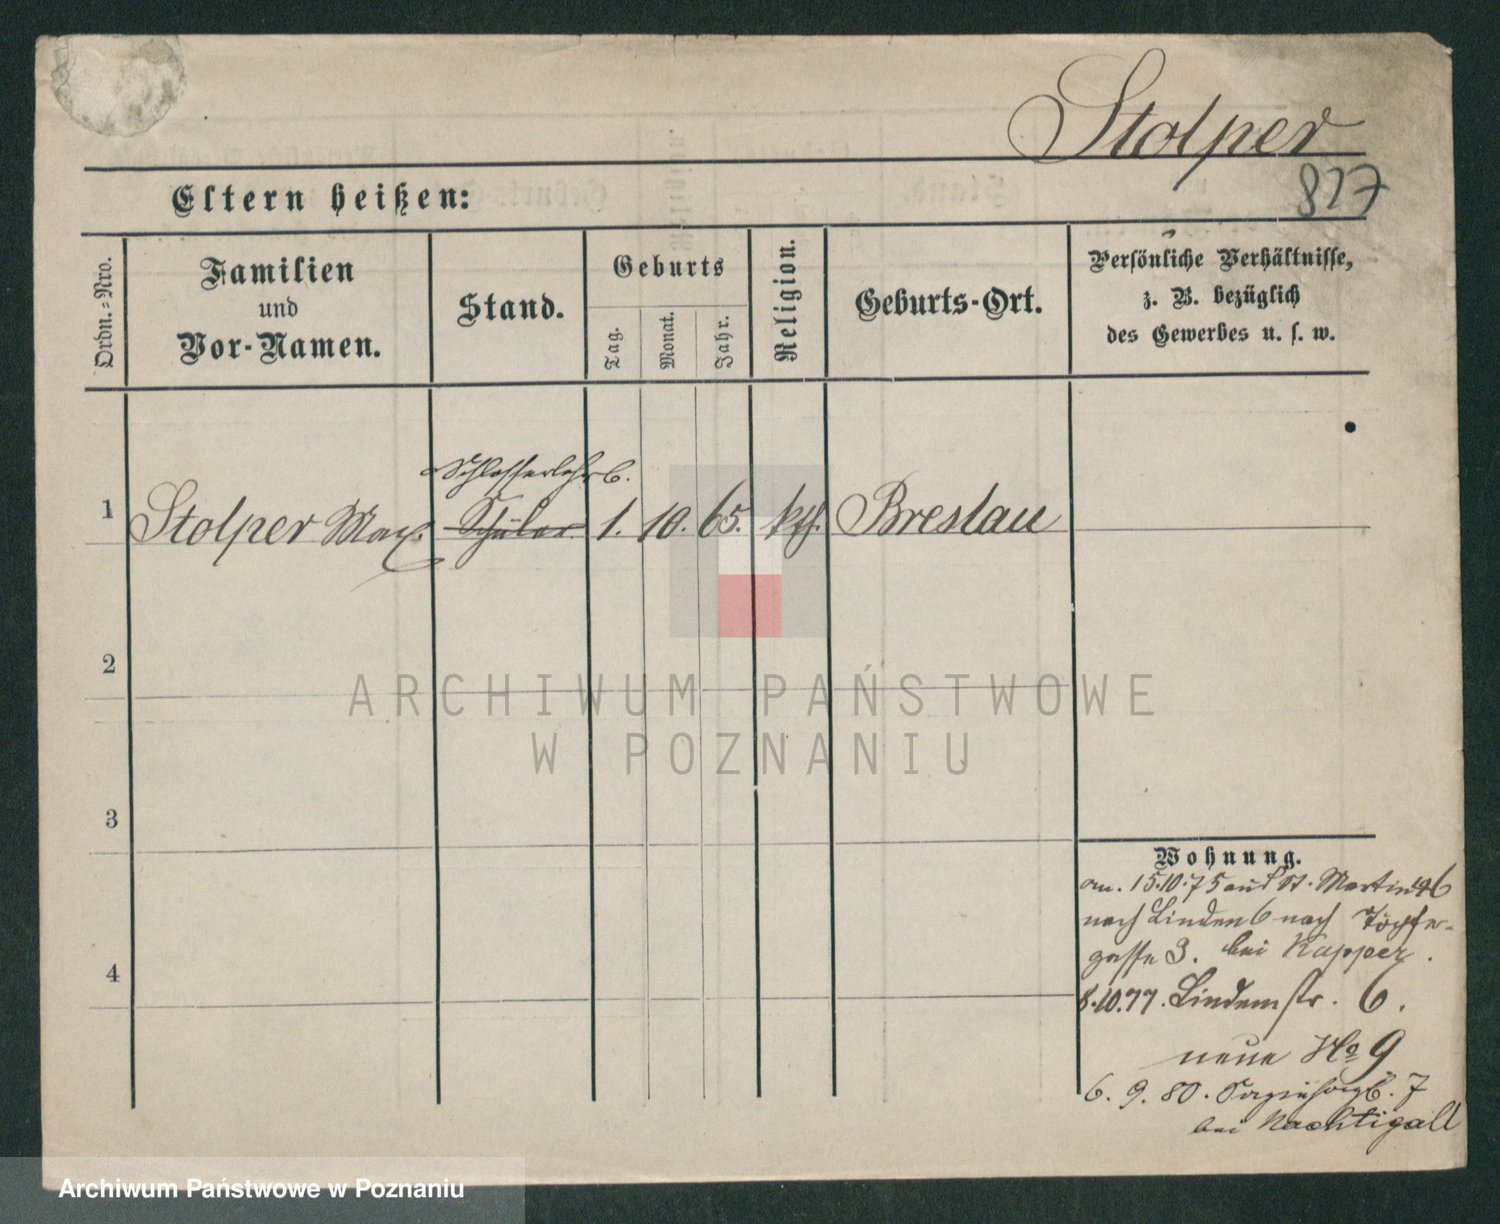 Stolper
827
Eltern heißen:
Ordn.=Nro.
Familien
und
Vor-Namen.
Stand.
Geburts
Tag.
Monat.
Jahr.
Religion.
Geburts-Ort.
Persönliche Verhältnisse,
z. B. bezüglich
des Gewerbes u. s. w.
Schlosserlehrl.
1 Stolper Max. Schüler 1. 10. 65. kth. Breslau
2
3
4
Wohnung.
am. 15.10.75 auf St. Martin 46
nach Linden 6 nach Töpfer-
gasse 3. bei Kapper.
8.10.77. Lindenstr. 6.
neue No 9
6. 9. 80. 7
bei Nachtigall
ARCHIWUM PAŃSTWOWE
W POZNANIU
Archiwum Państwowe w Poznaniu